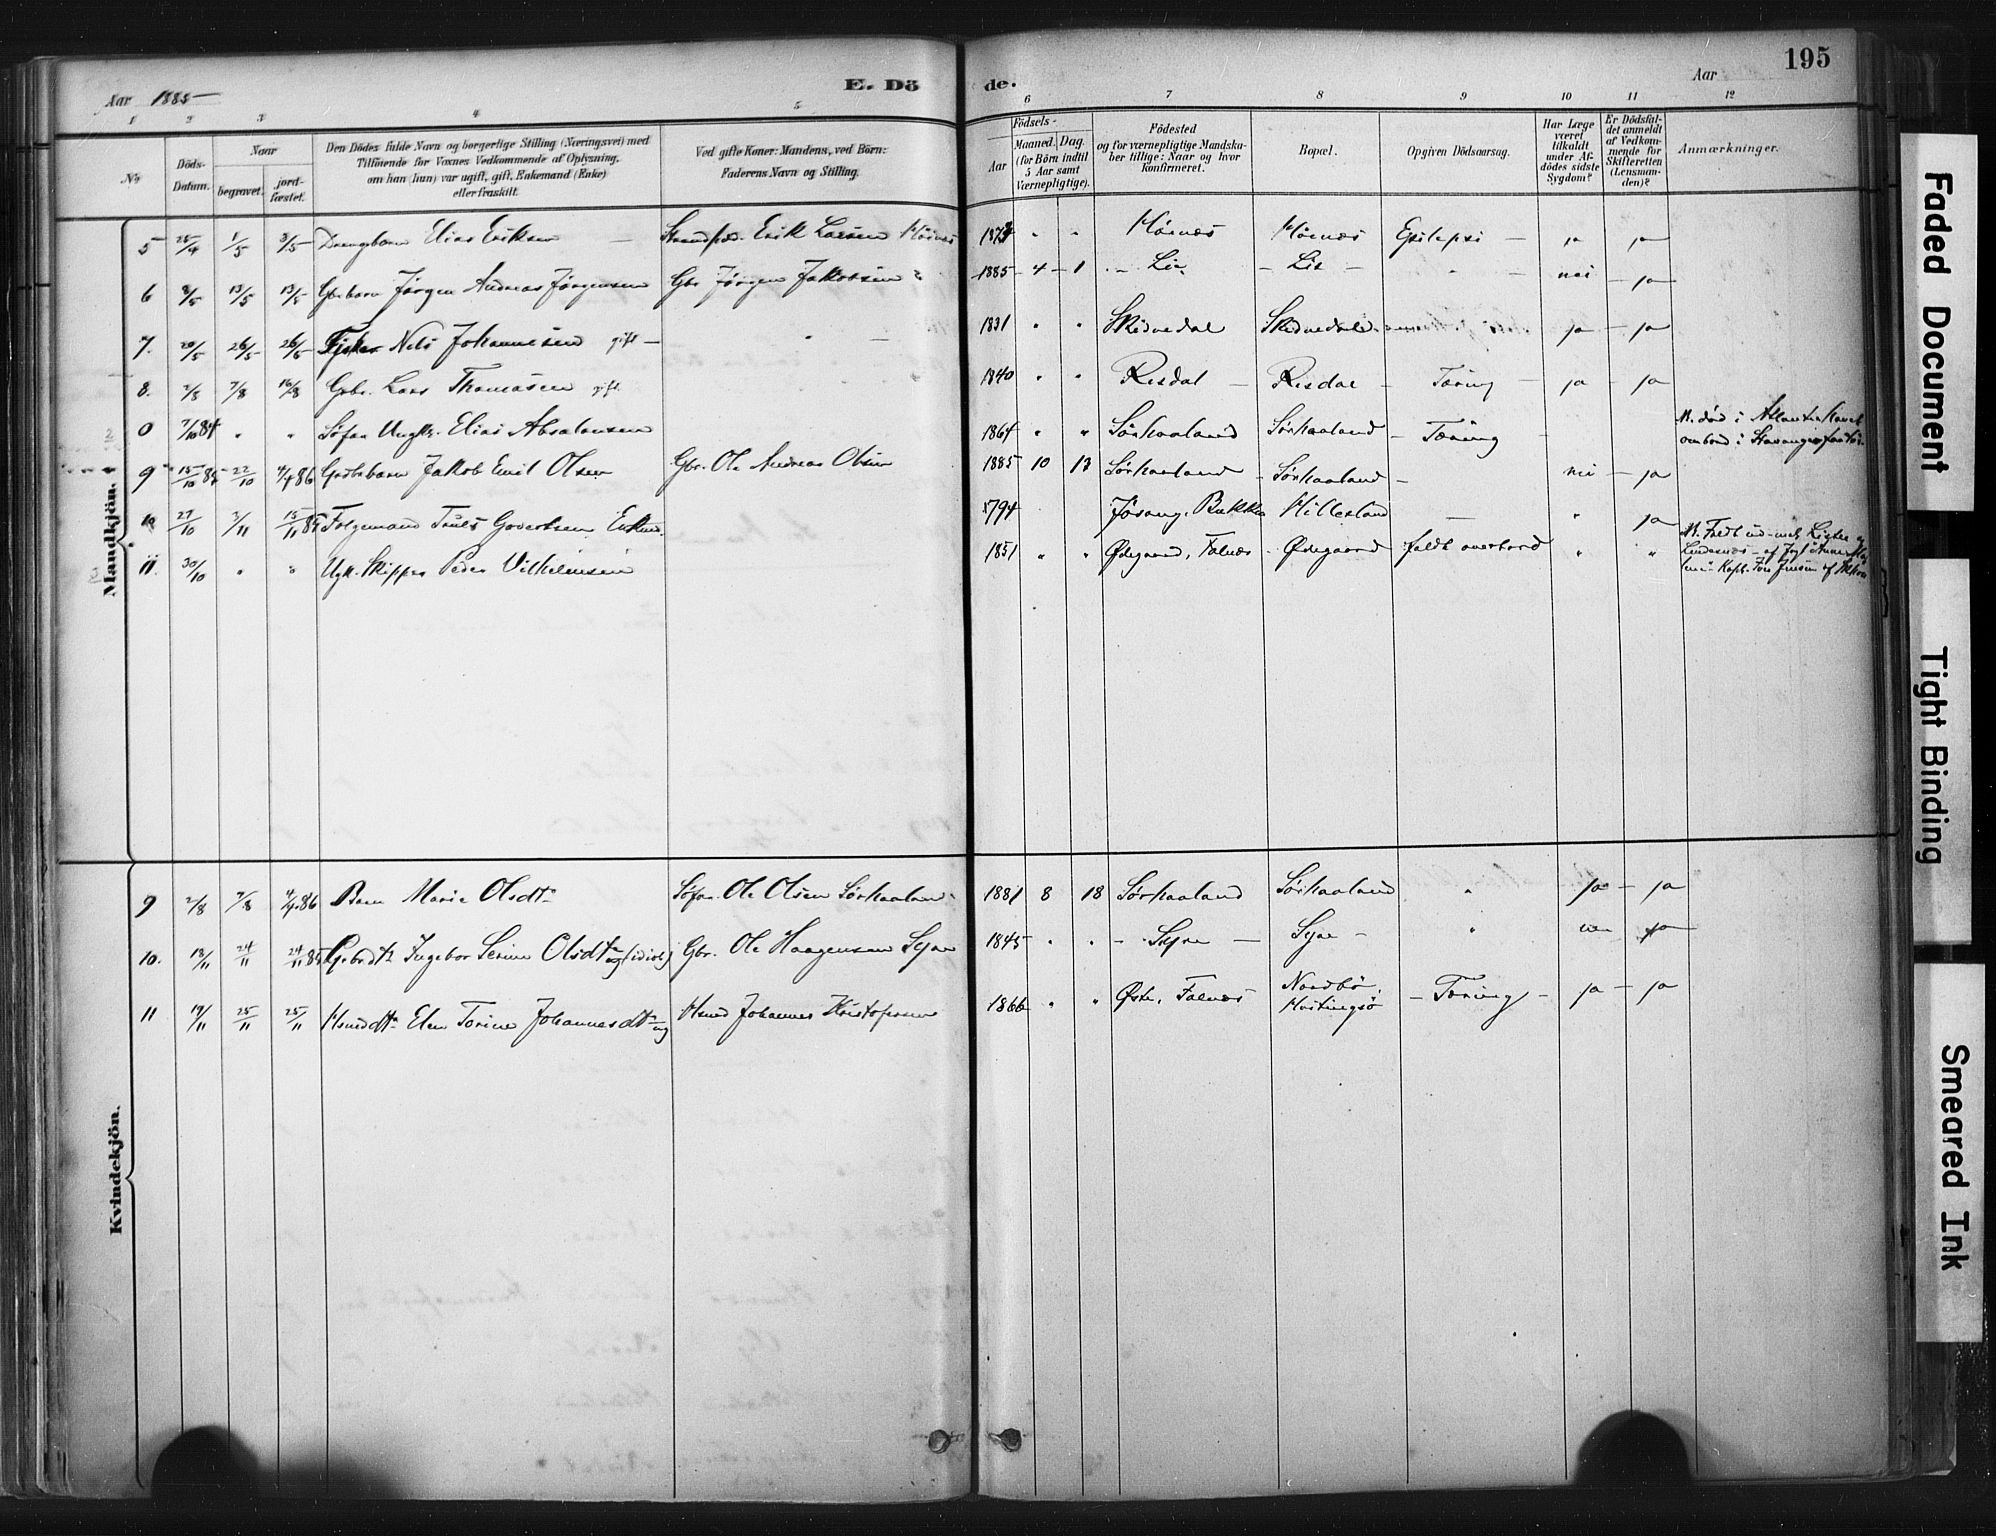 Aar 1885
E. Dö
de.
Aar
195
1 2 3 4 5 6 7 8 9 10 11 12
No
Döds-Datum.
Naar
begravet.
jordfæstet.
Den Dödes fulde Navn og borgerlige Stilling (Næringsvei) med
Tilföiende for Voxnes Vedkommende af Oplysning,
om han (hun) var ugift, gift, Enkemand (Enke)
eller fraskilt.
Ved gifte Koner: Mandens, ved Börn:
Faderens Navn og Stilling.
Födsels-
Aar
Maaned. Dag.
(for Börn indtil
5 Aar samt
Værnepligtige).
Födested
og for værnepligtige Mandskaber tillige: Naar og hvor
Konfirmeret.
Bopæl.
Opgiven Dödsaarsag.
Har Læge
været
tilkaldt
under Afdödes sidste
Sygdom?
Er Dödsfaldet anmeldt
af Vedkommende for
Skifteretten
(Lensmanden)?
Anmærkninger.
Mandkjön.
5 25/4 1/5 3/5 Drengebarn Elias Eriksen Erik Larsen Hösnæs 187 " " Hösnæs Hösnæs Epilepsi ja ja
6 8/5 13/5 13/5 Gbr. barn Jørgen Andreas Jørgensen Gbr Jørgen Jakobsen 1885 4 1 Lie Lie " nei ja
7. 20/5 26/5 26/5 Fisker Nils Johannesen gift " 1831 " " Skidnedal ja ja
8. 2/8 7/8 16/8 Gbr. Lars Thomasen gift 1840 " " Risdal Risdal Tæring ja ja
0 7/10 84 " " Søfar. Ungk. Elias Absalonsen 1864 " " Sörhaaland Sörhaaland Tæring N. död i Atlanterhavet
ombord i Stavanger
9 15/10 85 22/10 4/4 86 Jakob Emil Olsen Gbr. Ole Andreas Olsen 1885 10 13 Sörhaaland Sörhaaland nei ja
10 27/10 3/11 15/11 85 Folgemand Truls Govertsen Enkem. 1794 Jøsang, Bukken Hillesland " ja
11 30/10 " " Ugk. Skipper Peder Vilhelmsen 1851 " " Ødegaard, Falnæs Ødegaard faldt overbord " " N. Faldt ud mel. Lister og
Lindesnæs af Jagt
Kapt. Jensen af
Kvindekjön.
9 2/8 7/8 4/4 86 Barn Marie Olsdtr Søfar. Ole Olsen Sörhaaland 1881 8 18 Sörhaaland Sörhaaland " ja ja
10. 18/11 24/11 24/11 85 Gbrdtr Ingebor Serine Olsdtr ug (idiot) Gbr. Ole Haagensen Syre 1845 " " Syre Syre " nei ja
11 19/11 25/11 25/11 Hsmdtr Elen Torine Johannesdtr ug Hsmd Johannes Kristofersen 1866 " " Østr. Falnæs Nordbö, Tæring ja ja
Faded Document
Tight Binding
Smeared Ink